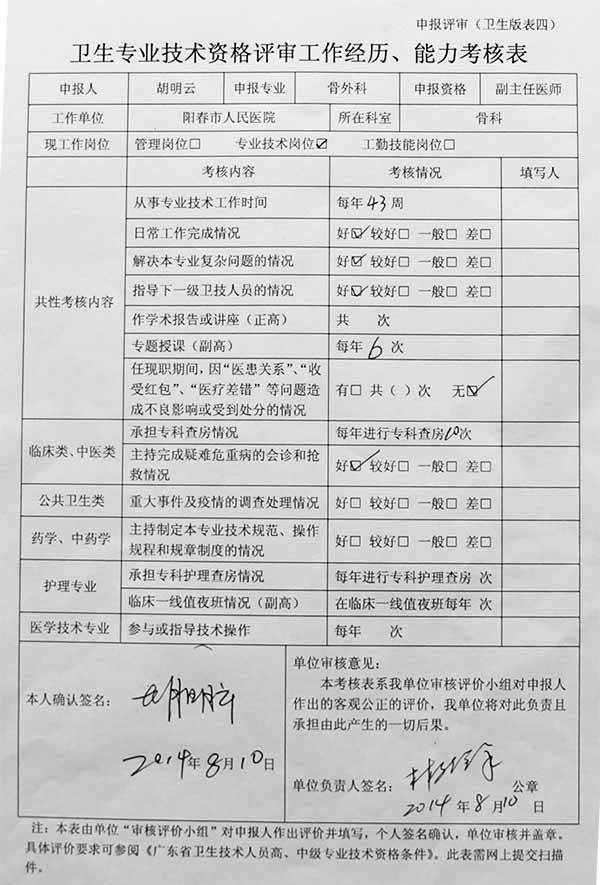 申报评审（卫生版表四）
卫生专业技术资格评审工作经历、能力考核表
申报人 胡明云 申报专业 骨外科 申报资格 副主任医师
工作单位 阳春市人民医院 所在科室 骨科
现工作岗位 管理岗位□ 专业技术岗位☑ 工勤技能岗位□
考核内容 考核情况 填写人
共性考核内容
从事专业技术工作时间 每年43周
日常工作完成情况 好☑ 较好□ 一般□ 差□
解决本专业复杂问题的情况 好☑ 较好□ 一般□ 差□
指导下一级卫技人员的情况 好☑ 较好□ 一般□ 差□
作学术报告或讲座（正高） 共 次
专题授课（副高） 每年6次
任现职期间，因“医患关系”、“收
受红包”、“医疗差错”等问题造
成不良影响或受到处分的情况
有□ 共（ ）次 无☑
临床类、中医类
承担专科查房情况 每年进行专科查房10次
主持完成疑难危重病的会诊和抢
救情况
好☑ 较好□ 一般□ 差□
公共卫生类 重大事件及疫情的调查处理情况 好□ 较好□ 一般□ 差□
药学、中药学
主持制定本专业技术规范、操作
规程和规章制度的情况
好□ 较好□ 一般□ 差□
护理专业
承担专科护理查房情况 每年进行专科护理查房 次
临床一线值夜班情况（副高） 在临床一线值夜班每年 次
医学技术专业 参与或指导技术操作 每年 次
本人确认签名： 胡明云
2014年8月10日
单位审核意见：
本考核表系我单位审核评价小组对申报人
作出的客观公正的评价，我单位将对此负责且
承担由此产生的一切后果。
单位负责人签名： 公章
2014年8月10日
注：本表由单位“审核评价小组”对申报人作出评价并填写，个人签名确认，单位审核并盖章。
具体评价要求可参阅《广东省卫生技术人员高、中级专业技术资格条件》。此表需网上提交扫描
件。